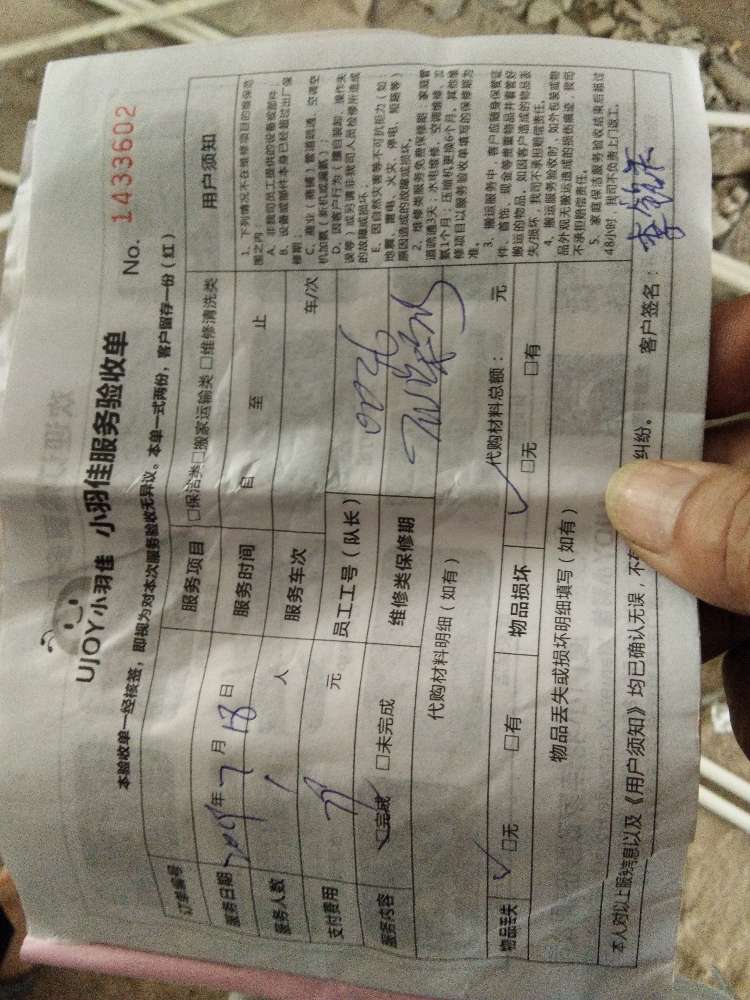 UJOY小羽佳 小羽佳服务验收单
No. 1433602
本验收单一经核签，即视为对本次服务验收无异议。本单一式两份，客户留存一份（红）
订单编号
服务项目 □保洁类□搬家运输类□维修清洗类
服务日期 2019年7月18日
服务时间 自 至 止
服务人数 1 人
服务车次 车/次
支付费用 元
员工工号（队长）
服务内容 □完成 □未完成
维修类保修期
代购材料明细（如有） 代购材料总额： 元
物品丢失 □无 □有
物品损坏 □无 □有
物品丢失或损坏明细填写（如有）
用户须知
1．下列情况不在维修项目的维保范
围之内
A．非我司员工提供的设备或部件；
B．设备或部件本身已经超过出厂保
修期
C．商业（商铺）管道疏通，空调空
D．因客户行为（擅自装卸、操作失
误等）或另请非我司人员检修所造成
的故障或损坏．
E．因自然灾害等不可抗拒力（如：
地震、雷电、火灾、停电、短路等）
原因造成的故障或损坏。
2．维修类服务免费保修期：家庭管
道疏通3天；水电维修、空调维修、加
氟1个月，压缩机更换6个月，其他维
修项目以服务验收单填写的保修期为
准．
3．搬运服务中，客户应随身保管证
件、首饰、现金等贵重物品并看管好
搬运的物品，如因客户造成的物品丢
失/损坏，我司不承担赔偿责任。
4．搬运服务验收时，如外包装或物
品外观无搬运造成的损伤痕迹，我司
不承担赔偿责任。
5．家庭保洁服务验收结束后超过
48小时，我司不负责上门返工。
本人对以上服务信息以及《用户须知》均已确认无误，不 纠纷。 客户签名：